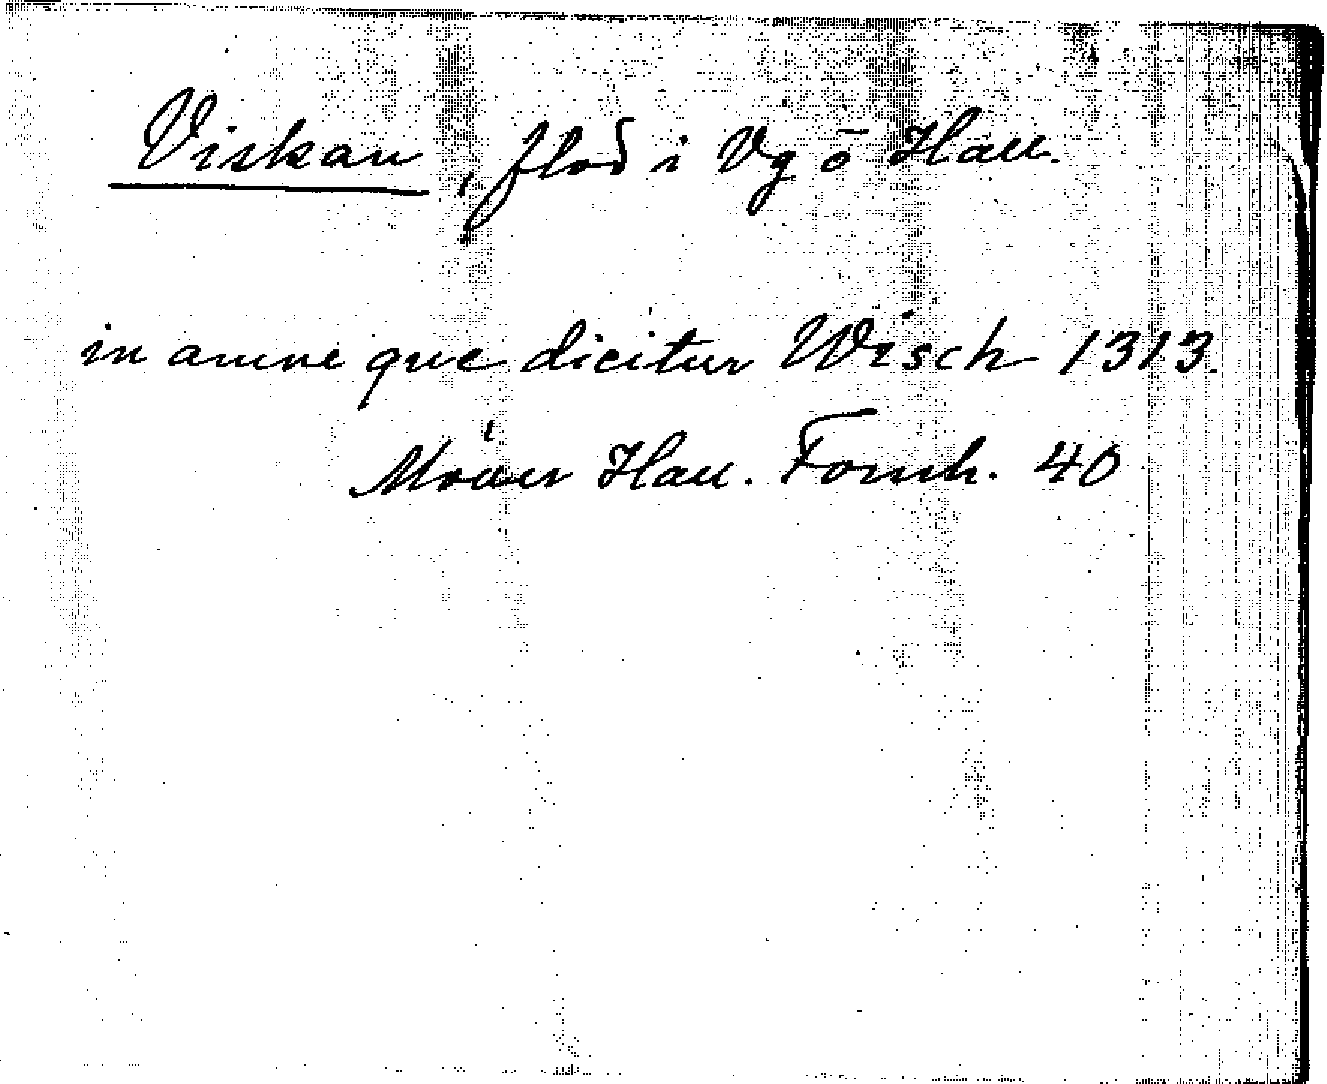 Viskan, flod i Vg ō Hall.
in amne que dicitur Wisch 1313.
Hall. Fornh. 40